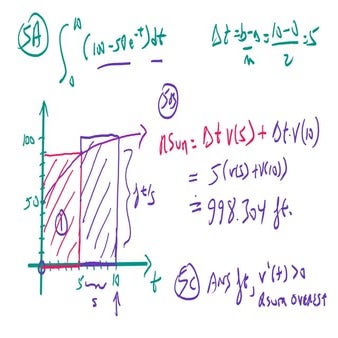 5A ∫₀¹⁰ (100-50e^-t) dt
Δt = b-a/n = 10-0/2 = 5
5B
RSum = Δt v(5) + Δt·v(10)
= 5(v(5)+v(10))
= 998.304 ft.
100
50
1
ft/s
0
5
10
t
5C ANS ft, v'(t)>0
RSUM OVEREST